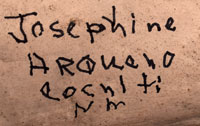 Josephine
ARQUERO
COCHITI
NM